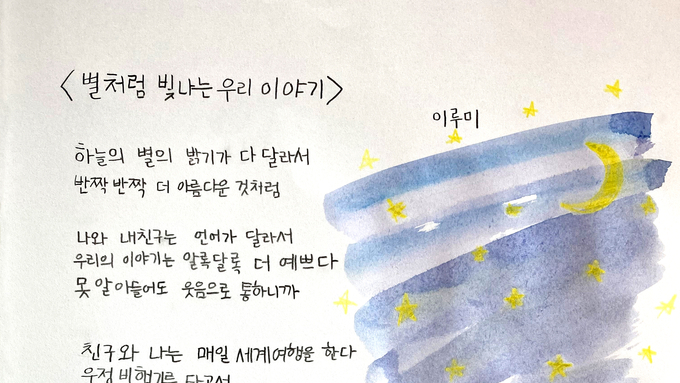 <별처럼 빛나는 우리 이야기>
이루미
하늘의 별의 밝기가 다 달라서
반짝 반짝 더 아름다운 것처럼
나와 내친구는 언어가 달라서
우리의 이야기는 알록달록 더 예쁘다
못 알아들어도 웃음으로 통하니까
친구와 나는 매일 세계여행을 한다
우정 비행기를 타고서